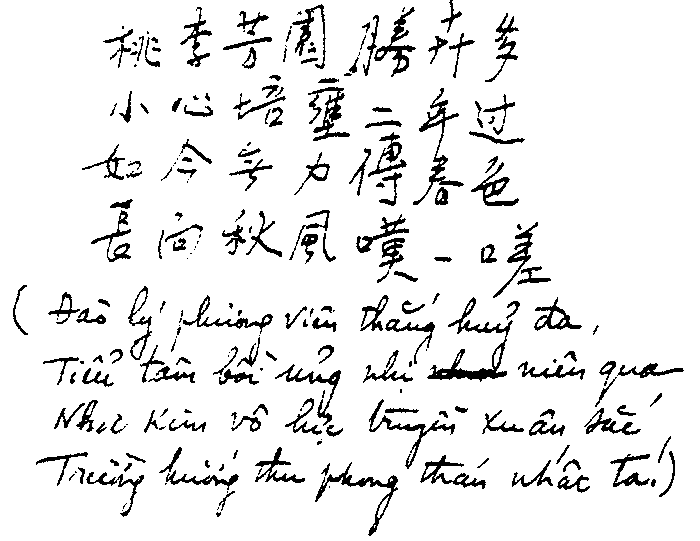 桃李芳園勝卉多
小心培壅二年过
如今无力傳春色
長向秋風嘆一嗟
(Đào lý phương viên thắng huỷ đa,
Tiểu tâm bồi ủng nhị niên qua
Như kim vô lực truyền xuân sắc
Trường hướng thu phong thán nhất ta!)